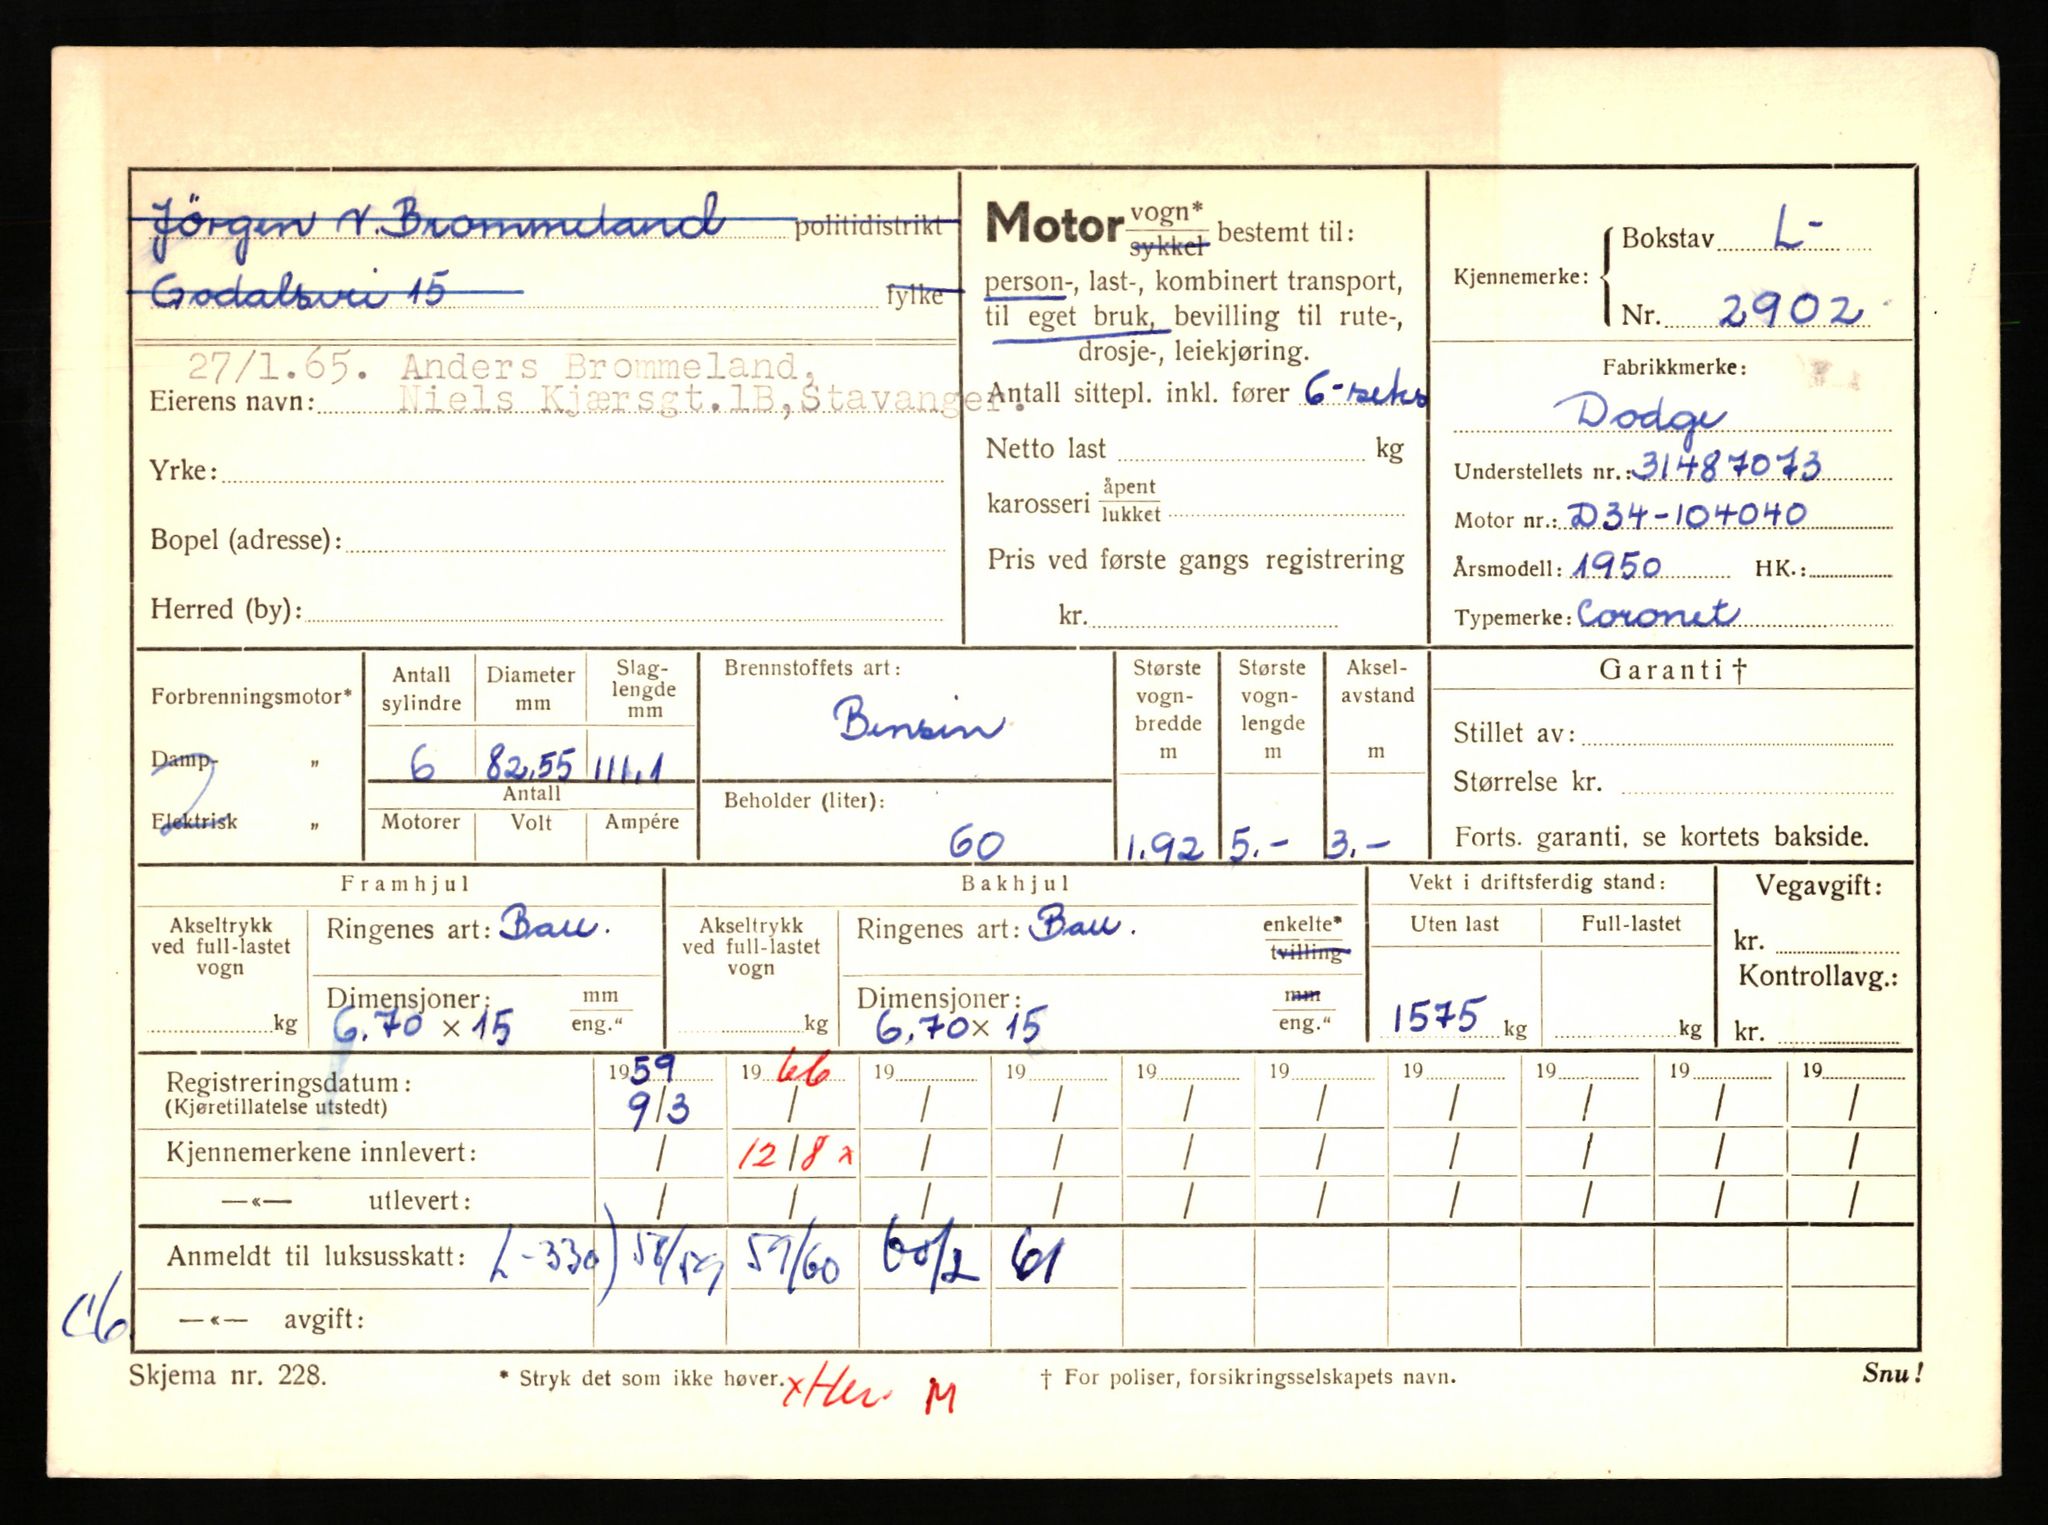 Jörgen V. Brommeland politidistrikt
Godalsvei 15 fylke
27/1.65. Anders Brommeland,
Eierens navn: Niels Kjærsgt.1B, Stavanger.
Yrke:
Bopel (adresse):
Herred (by):
Motor vogn*
sykkel bestemt til:
person-, last-, kombinert transport,
til eget bruk, bevilling til rute-,
drosje-, leiekjøring.
Antall sittepl. inkl. fører 6-seks
Netto last kg
karosseri åpent
lukket
Pris ved første gangs registrering
kr.
Kjennemerke: Bokstav L-
Nr. 2902
Fabrikkmerke:
Dodge
Understellets nr.: 31487073
Motor nr.: D34-104040
Årsmodell: 1950 HK.:
Typemerke: Coronet
Forbrenningsmotor*
Damp- „
Elektrisk „
Antall sylindre
Diameter mm
Slag-
lengde
mm
6 82,55 111,1
Antall
Motorer Volt Ampére
Brennstoffets art:
Bensin
Beholder (liter):
60
Største
vogn-
bredde
m
1.92
Største
vogn-
lengde
m
5.-
Aksel-
avstand
m
3.-
Garanti †
Stillet av:
Størrelse kr.
Forts. garanti, se kortets bakside.
Framhjul
Akseltrykk
ved full-lastet
vogn
kg
Ringenes art: Ball.
Dimensjoner: mm
6.70 x 15 eng."
Bakhjul
Akseltrykk
ved full-lastet
vogn
kg
Ringenes art: Ball. enkelte*
tvilling
Dimensjoner: mm
6,70 x 15 eng."
Vekt i driftsferdig stand:
Uten last Full-lastet
1575 kg kg
Vegavgift:
kr.
Kontrollavg.:
kr.
Registreringsdatum: 1959 1966 19 19 19 19 19 19 19 19
(Kjøretillatelse utstedt) 9/3 / / / / / / / / /
Kjennemerkene innlevert: / 12/8 x / / / / / / / /
—«— utlevert: / / / / / / / / / /
Anmeldt til luksusskatt: L-330) 58/59 59/60 60/2 61
—«— avgift:
Skjema nr. 228. * Stryk det som ikke høver. x Her M † For poliser, forsikringsselskapets navn. Snu!